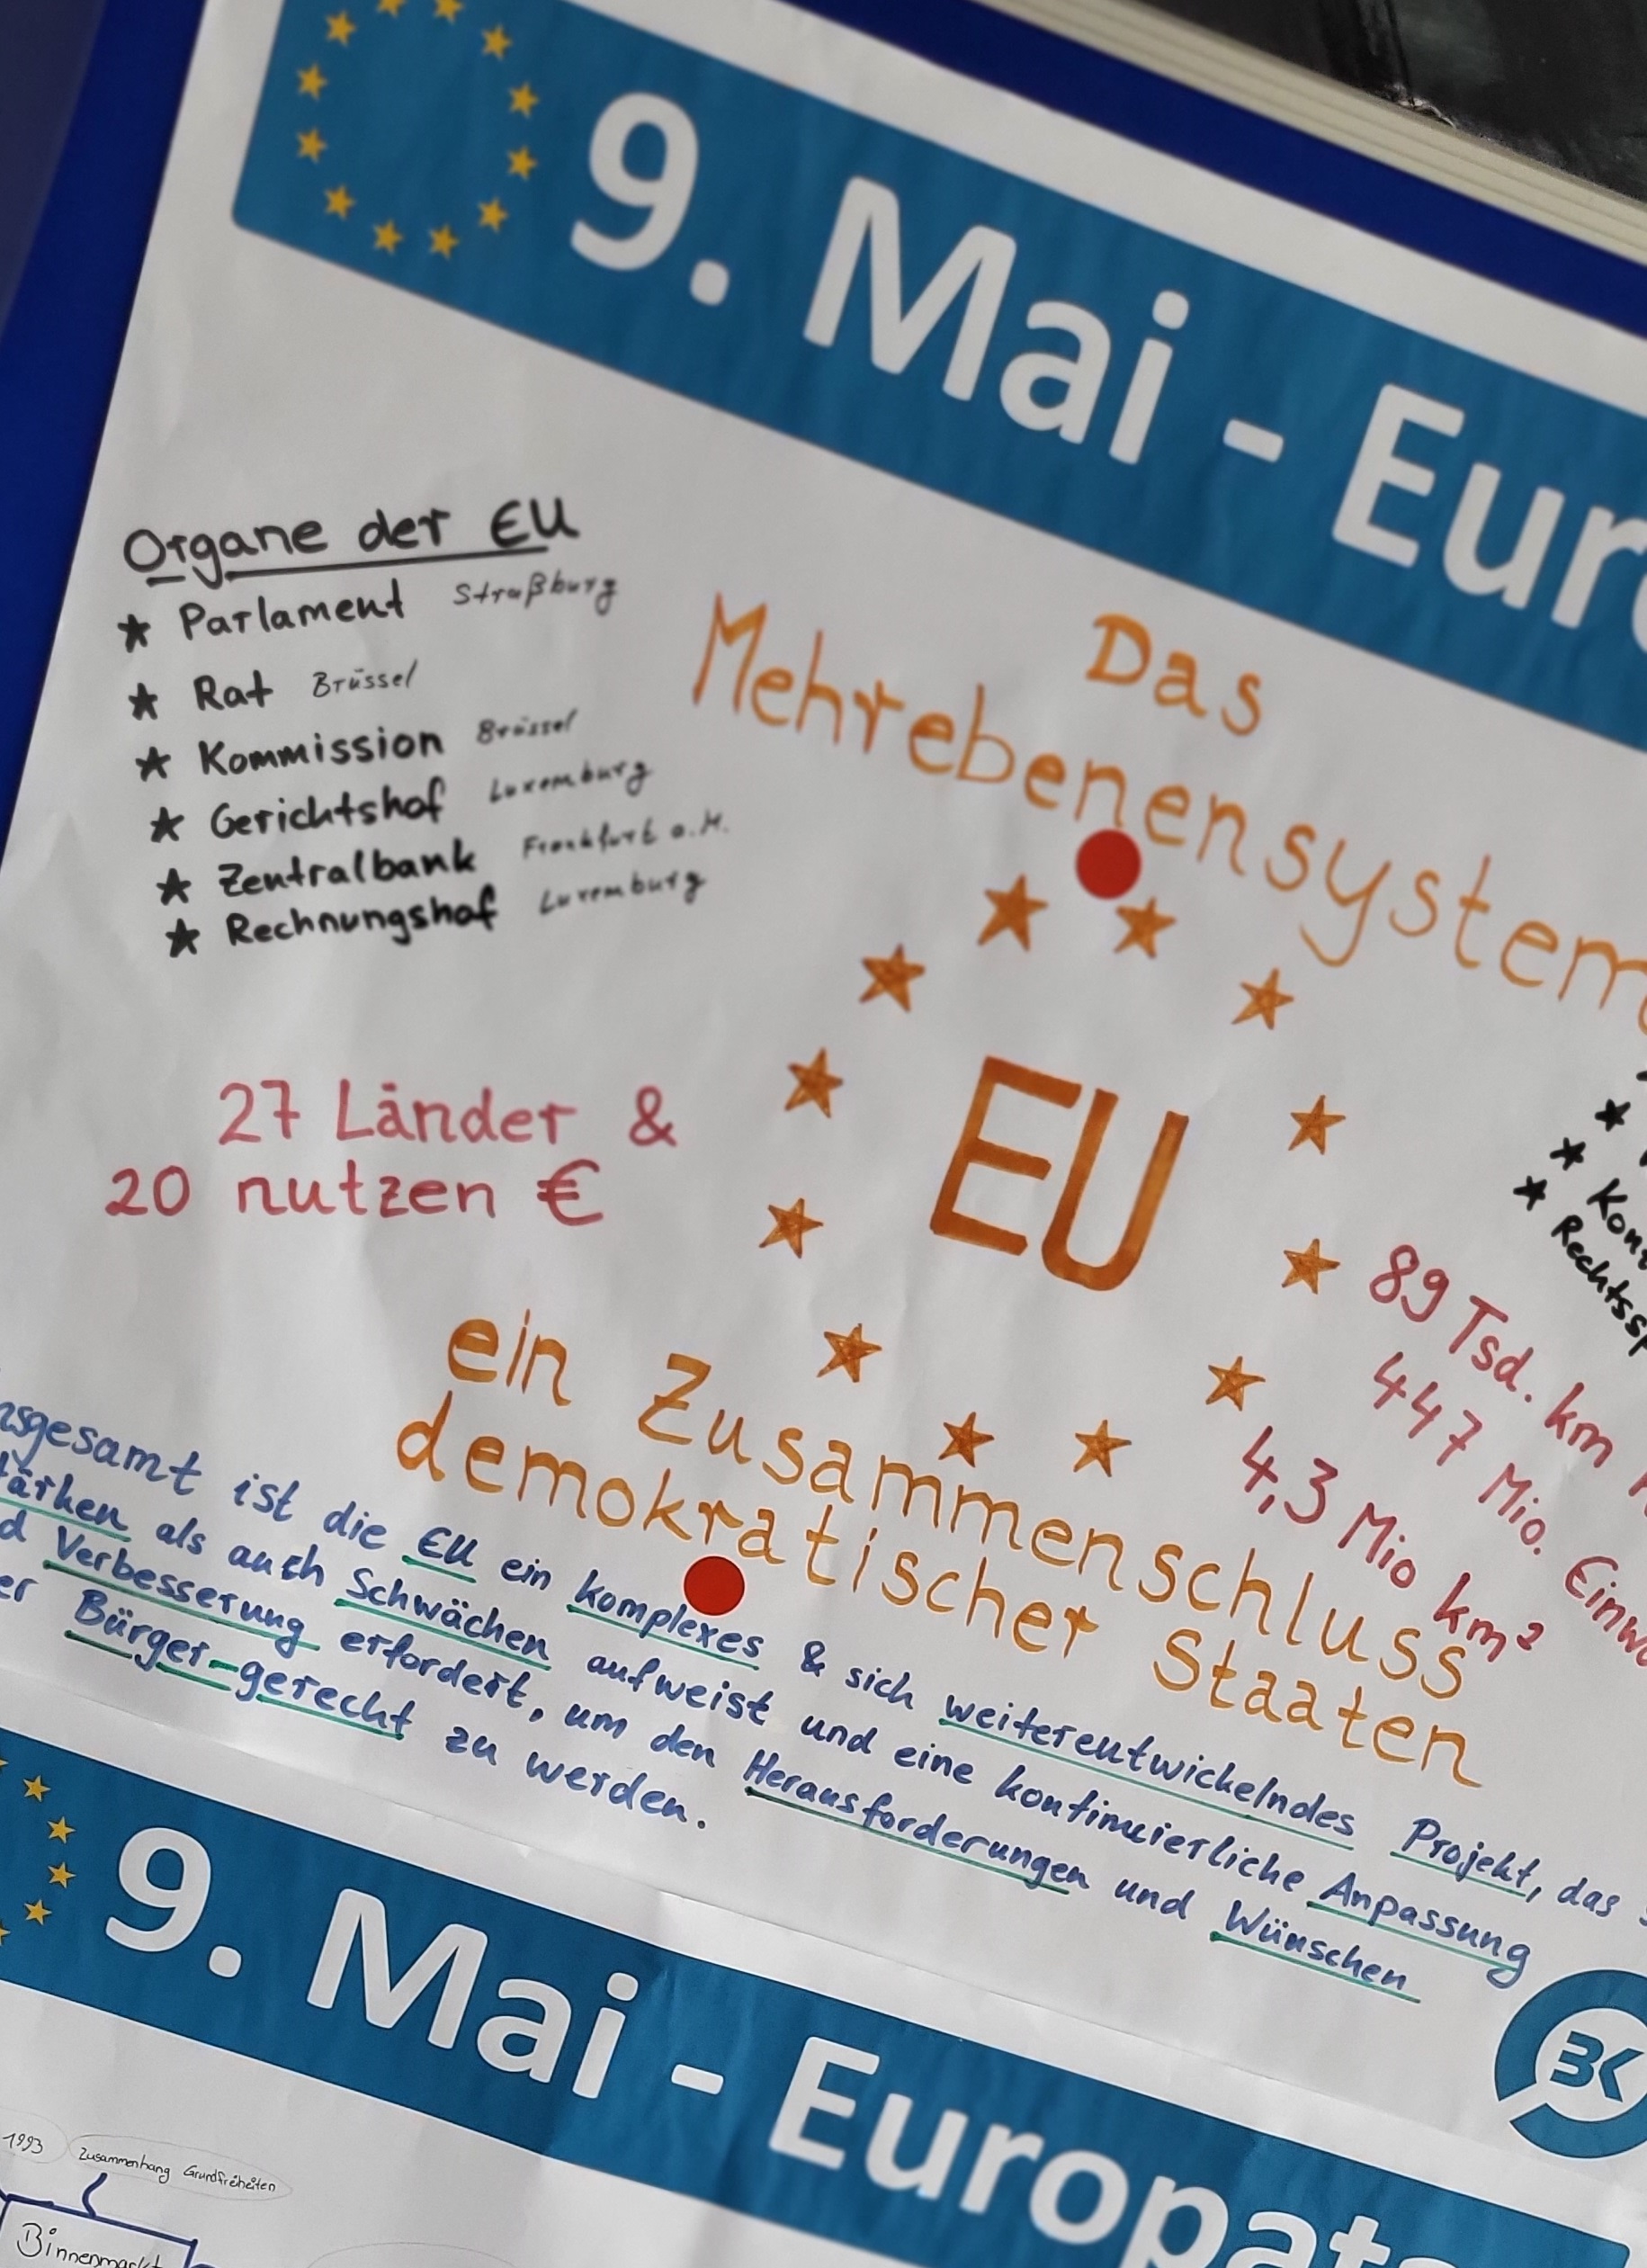 9. Mai - Eur
Organe der EU
★ Parlament Straßburg
★ Rat Brüssel
★ Kommission Brüssel
★ Gerichtshof Luxemburg
★ Zentralbank Frankfurt a.M.
★ Rechnungshof Luxemburg
Das
Mehrebenensystem
EU
27 Länder &
20 nutzen €
89 Tsd. km
447 Mio. Einw
4,3 Mio km²
ein Zusammenschluss
demokratischer Staaten
nsgesamt ist die EU ein komplexes & sich weiterentwickelndes Projekt, das
tärken als auch Schwächen aufweist und eine kontinuierliche Anpassung
d Verbesserung erfordert, um den Herausforderungen und Wünschen
er Bürger-gerecht zu werden.
BK
9. Mai - Europat
1993
Zusammenhang Grundfreiheiten
Binnenmarkt